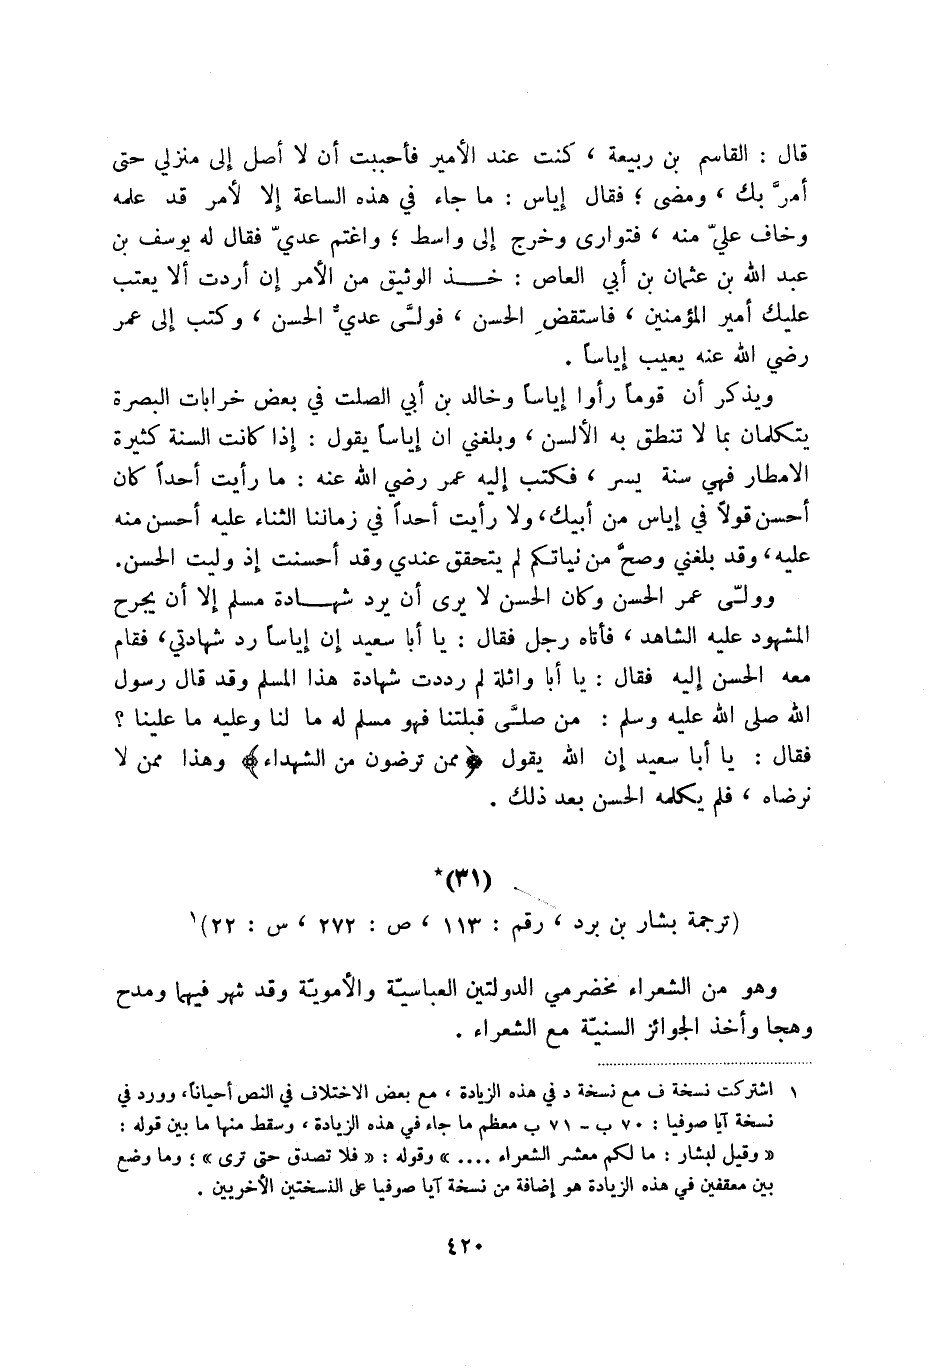 قال : القاسم بن ربيعة ، كنت عند الأمير فأحببت أن لا أصل إلى منزلي حتى
أمرَّ بك ، ومضى ؛ فقال إياس : ما جاء في هذه الساعة إلا لأمر قد علمه
وخاف عليّ منه ، فتوارى وخرج إلى واسط ؛ واغتم عديّ فقال له يوسف بن
عبد الله بن عثمان بن أبي العاص : خـــذ الوثيق من الأمر إن أردت ألا يعتب
عليك أمير المؤمنين ، فاستقضِ الحسن ، فولَّى عديٌّ الحسن ، وكتب إلى عمر
رضي الله عنه يعيب إياساً .
ويذكر أن قوماً رأوا إياساً وخالد بن أبي الصلت في بعض خرابات البصرة
يتكلمان بما لا تنطق به الألسن ، وبلغني ان إياساً يقول : إذا كانت السنة كثيرة
الامطار فهي سنة يسر ، فكتب إليه عمر رضي الله عنه : ما رأيت أحداً كان
أحسن قولاً في إياس من أبيك، ولا رأيت أحداً في زماننا الثناء عليه أحسن منه
عليه، وقد بلغني وصحَّ من نياتكم لم يتحقق عندي وقد أحسنت إذ وليت الحسن.
وولّى عمر الحسن وكان الحسن لا يرى أن يرد شهـــادة مسلم إلا أن يجرح
المشهود عليه الشاهد ، فأتاه رجل فقال : يا أبا سعيد إن إياساً رد شهادتي، فقام
معه الحسن إليه فقال : يا أبا واثلة لم رددت شهادة هذا المسلم وقد قال رسول
الله صلى الله عليه وسلم : من صلَّى قبلتنا فهو مسلم له ما لنا وعليه ما علينا ؟
فقال : يا أبا سعيد إن الله يقول ﴿ممن ترضون من الشهداء﴾ وهذا ممن لا
نرضاه ، فلم يكلمه الحسن بعد ذلك .
(٣١)*
(ترجمة بشار بن برد ، رقم : ١١٣ ، ص : ٢٧٢ ، س : ٢٢)١
وهو من الشعراء مخضرمي الدولتين العباسيّة والأمويّة وقد شهر فيهما ومدح
وهجا وأخذ الجوائز السنيّة مع الشعراء .
١ اشتركت نسخة ف مع نسخة د في هذه الزيادة ، مع بعض الاختلاف في النص أحياناً، وورد في
نسخة آيا صوفيا : ٧٠ ب – ٧١ ب معظم ما جاء في هذه الزيادة ، وسقط منها ما بين قوله :
« وقيل لبشار : ما لكم معشر الشعراء .... » وقوله : « فلا تصدق حتى ترى » ؛ وما وضع
بين معقفين في هذه الزيادة هو إضافة من نسخة آيا صوفيا على النسختين الأخريين .
٤٢٠